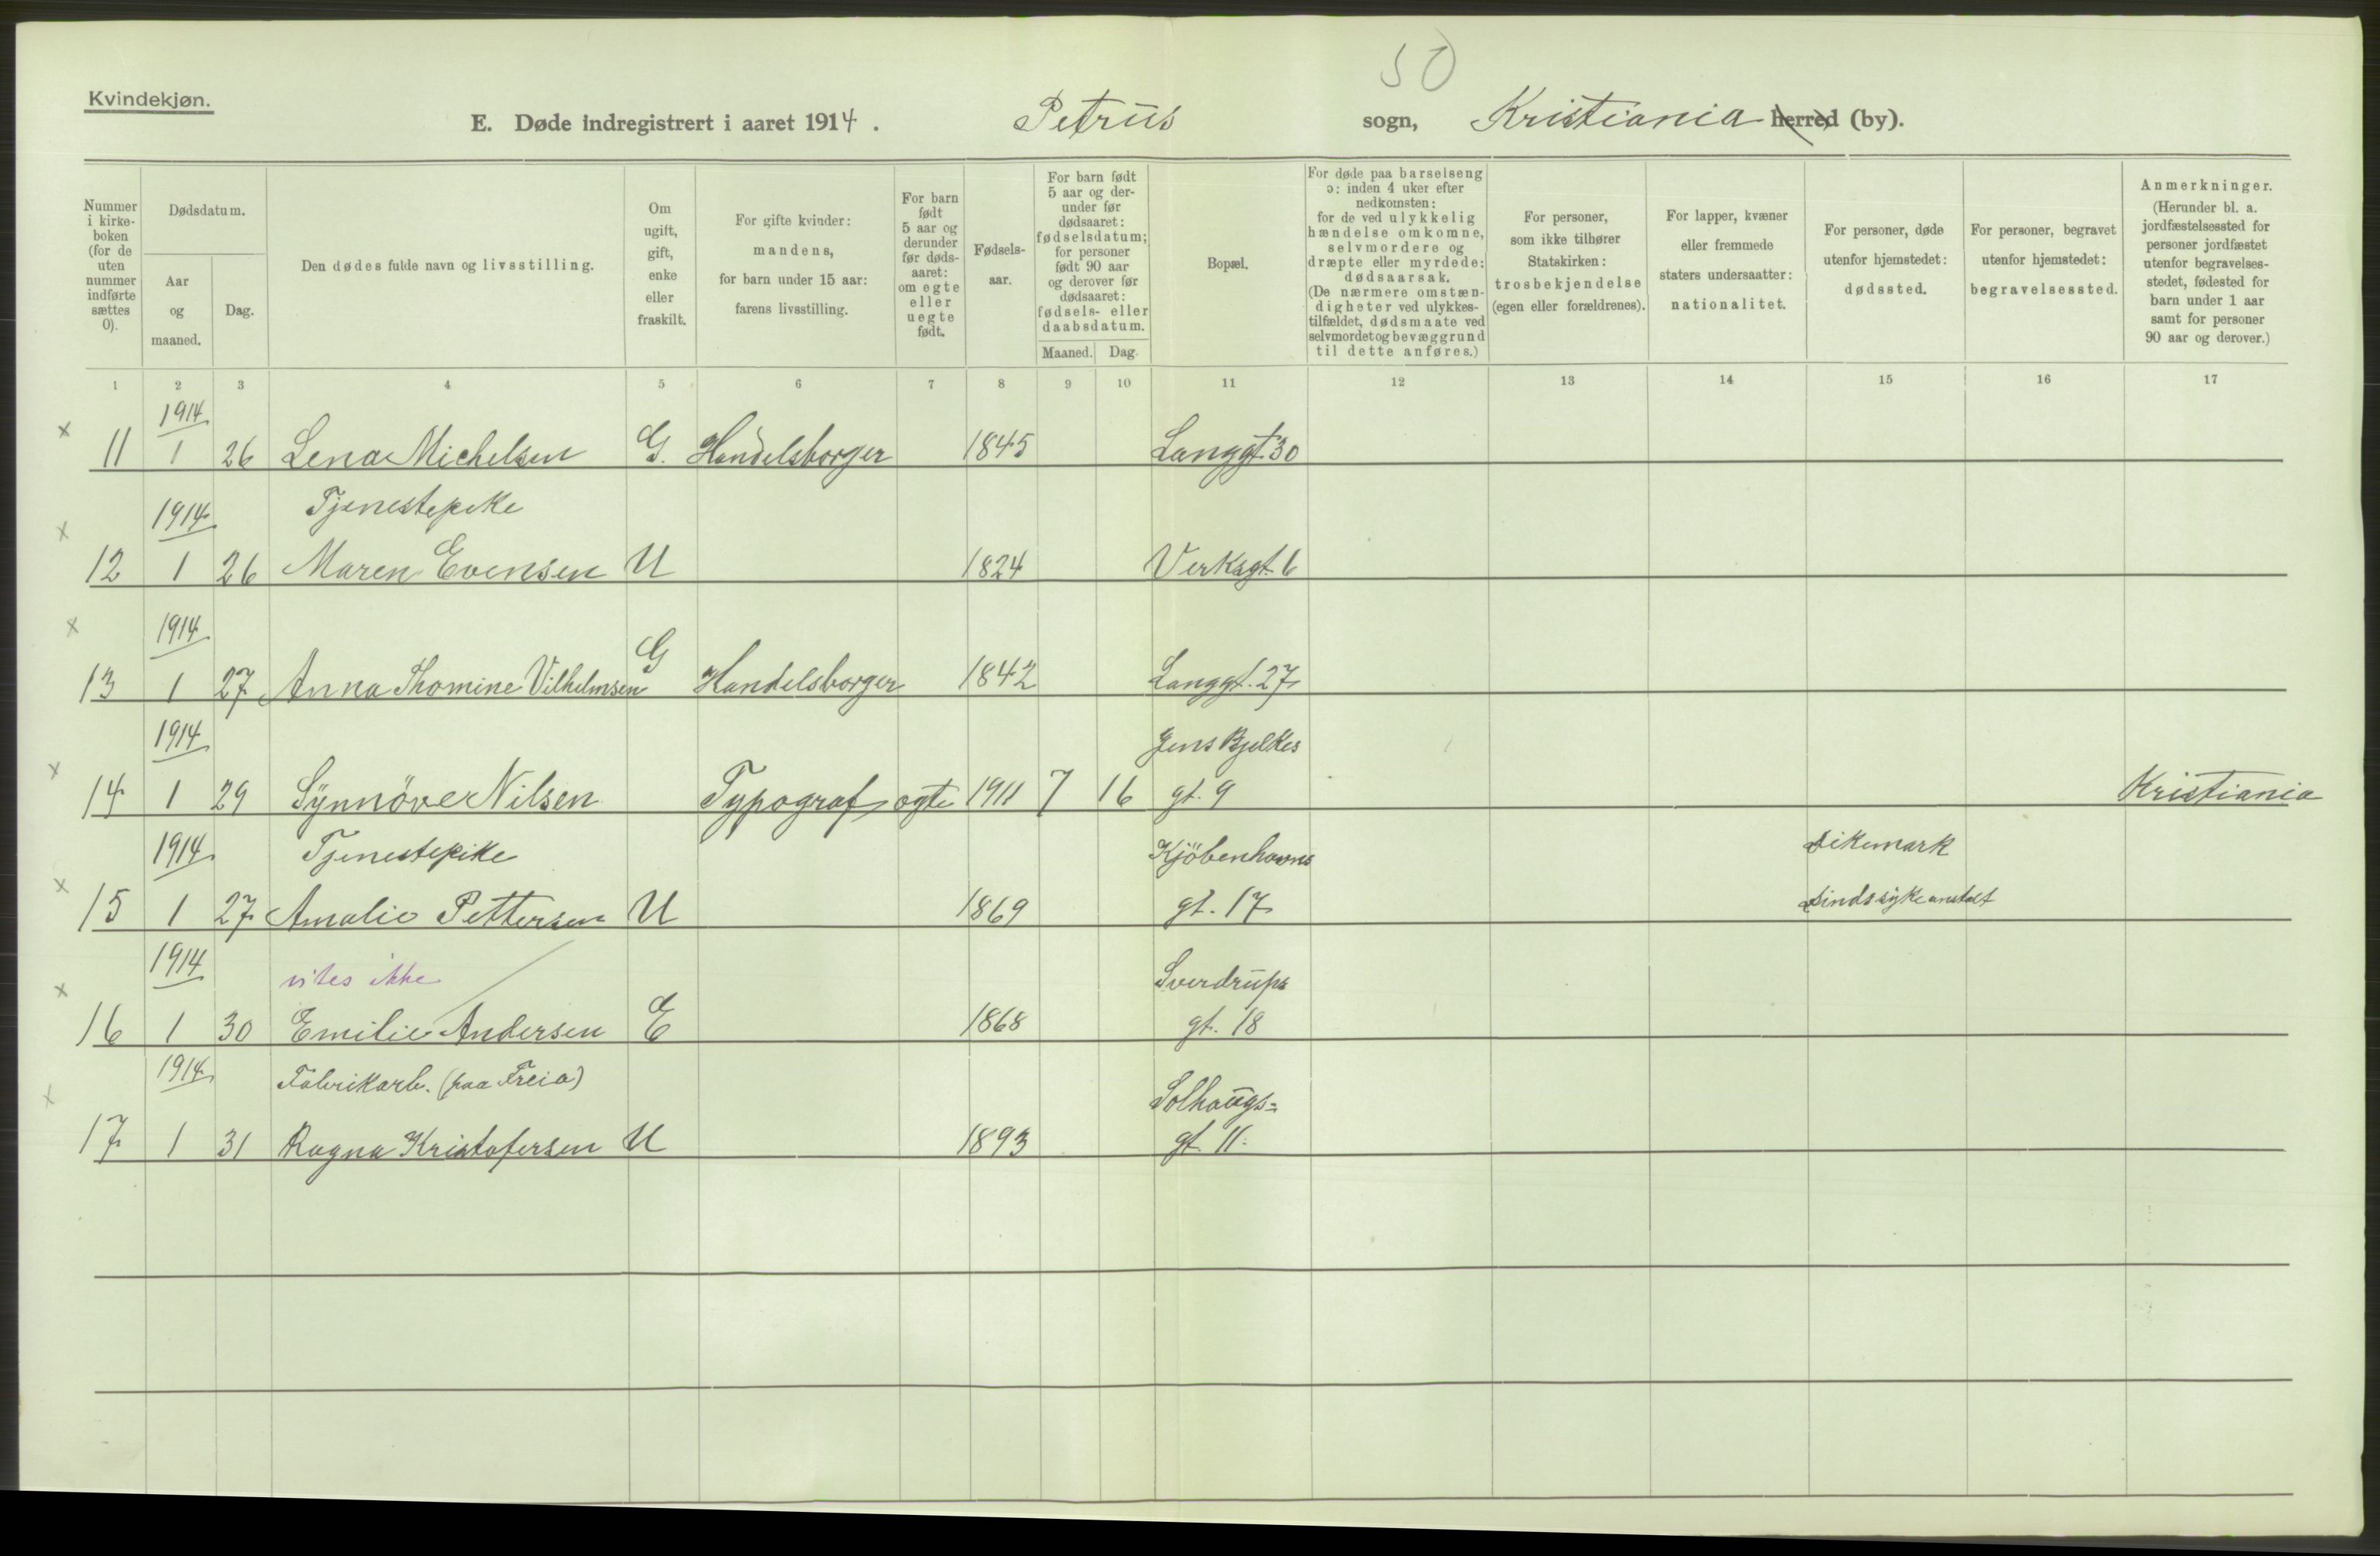 50
Kvindekjøn.
E. Døde indregistrert i aaret 1914. Petrus sogn, Kristiania herred (by).
Nummer i kirke-boken (for de uten nummer indførte sættes 0).
Dødsdatum.
Aar og maaned.
Dag.
Den dødes fulde navn og livsstilling.
Om ugift, gift, enke eller fraskilt.
For gifte kvinder: mandens, for barn under 15 aar: farens livsstilling.
For barn født 5 aar og derunder før døds-aaret: om egte eller uegte født.
Fødsels-aar.
For barn født 5 aar og der-under før dødsaaret: fødselsdatum; for personer født 90 aar og derover før dødsaaret: fødsels- eller daabsdatum.
Maaned. Dag.
Bopæl.
For døde paa barselseng ɔ: inden 4 uker efter nedkomsten: for de ved ulykkelig hændelse omkomne, selvmordere og dræpte eller myrdede: dødsaarsak. (De nærmere omstæn-digheter ved ulykkes-tilfældet, dødsmaate ved selvmordet og bevæggrund til dette anføres.)
For personer, som ikke tilhører Statskirken: trosbekjendelse (egen eller forældrenes).
For lapper, kvæner eller fremmede staters undersaatter: nationalitet.
For personer, døde utenfor hjemstedet: dødssted.
For personer, begravet utenfor hjemstedet: begravelsessted.
Anmerkninger. (Herunder bl. a. jordfæstelsessted for personer jordfæstet utenfor begravelses-stedet, fødested for barn under 1 aar samt for personer 90 aar og derover.)
1 2 3 4 5 6 7 8 9 10 11 12 13 14 15 16 17
1914
x 11 1 26 Lena Michelsen G. Handelsborger 1845 Langgt. 30
1914 Tjenestepike
x 12 1 26 Maren Evensen U 1824 Verksgt. 6
1914
x 13 1 27 Anna Thomine Vilhelmsen G Handelsborger 1842 Langgt. 27
1914 Jens Bjelkes
x 14 1 29 Synnöve Nilsen Typograf egte 1911 7 16 gt. 9 Kristiania
1914 Tjenestepike Kjöbenhavns Dikemark
x 15 1 27 Amalie Pettersen U 1869 gt. 17 Sindssykeanstalt
1914 vites ikke Sverdrups
x 16 1 30 Emilie Andersen E 1868 gt. 18
1914 Fabrikarb. (paa Freia) Solhaugs=
x 17 1 31 Ragna Kristofersen U 1893 gt. 11.